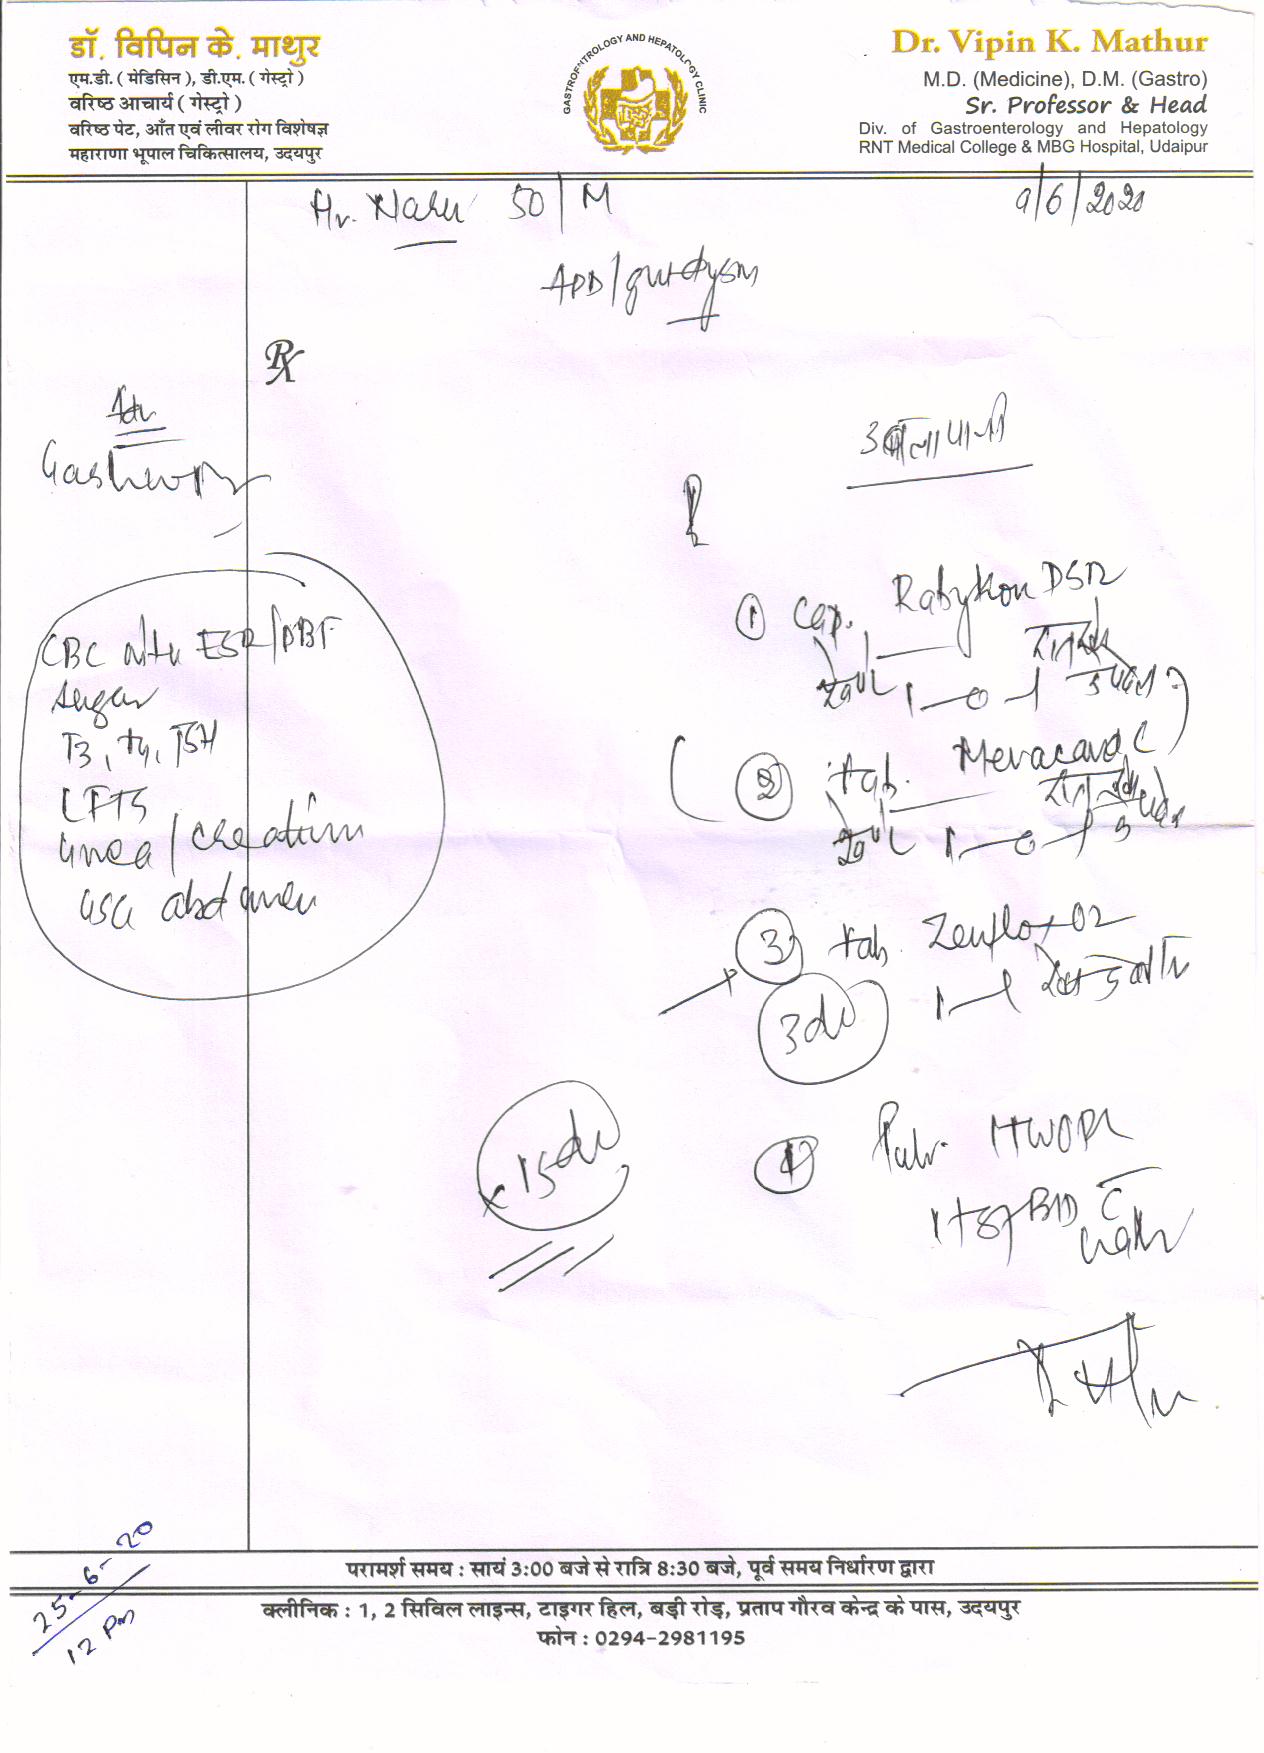 डॉ. विपिन के. माथुर
एम.डी. ( मेडिसिन ), डी.एम. ( गेस्ट्रो )
वरिष्ठ आचार्य ( गेस्ट्रो )
वरिष्ठ पेट, आँत एवं लीवर रोग विशेषज्ञ
महाराणा भूपाल चिकित्सालय, उदयपुर
GASTROENTROLOGY AND HEPATOLOGY CLINIC
Dr. Vipin K. Mathur
M.D. (Medicine), D.M. (Gastro)
Sr. Professor & Head
Div. of Gastroenterology and Hepatology
RNT Medical College & MBG Hospital, Udaipur
50/M
9/6/2020
APD/
Rx
Adv
उबला पानी
CBC with ESR/PBF
Sugar
T3, T4, TSH
LFTS
Urea/Creatinin
USG abdomen
① Cap. DSR
1-0-1
② tab.
1-0-1
③ tab. Zenflox-OZ
1-1
3d
x 15d
④ Pulv.
1 tsf BID c̄
water
25-6-20
12 Pm
परामर्श समय : सायं 3:00 बजे से रात्रि 8:30 बजे, पूर्व समय निर्धारण द्वारा
क्लीनिक : 1, 2 सिविल लाइन्स, टाइगर हिल, बड़ी रोड़, प्रताप गौरव केन्द्र के पास, उदयपुर
फोन : 0294-2981195